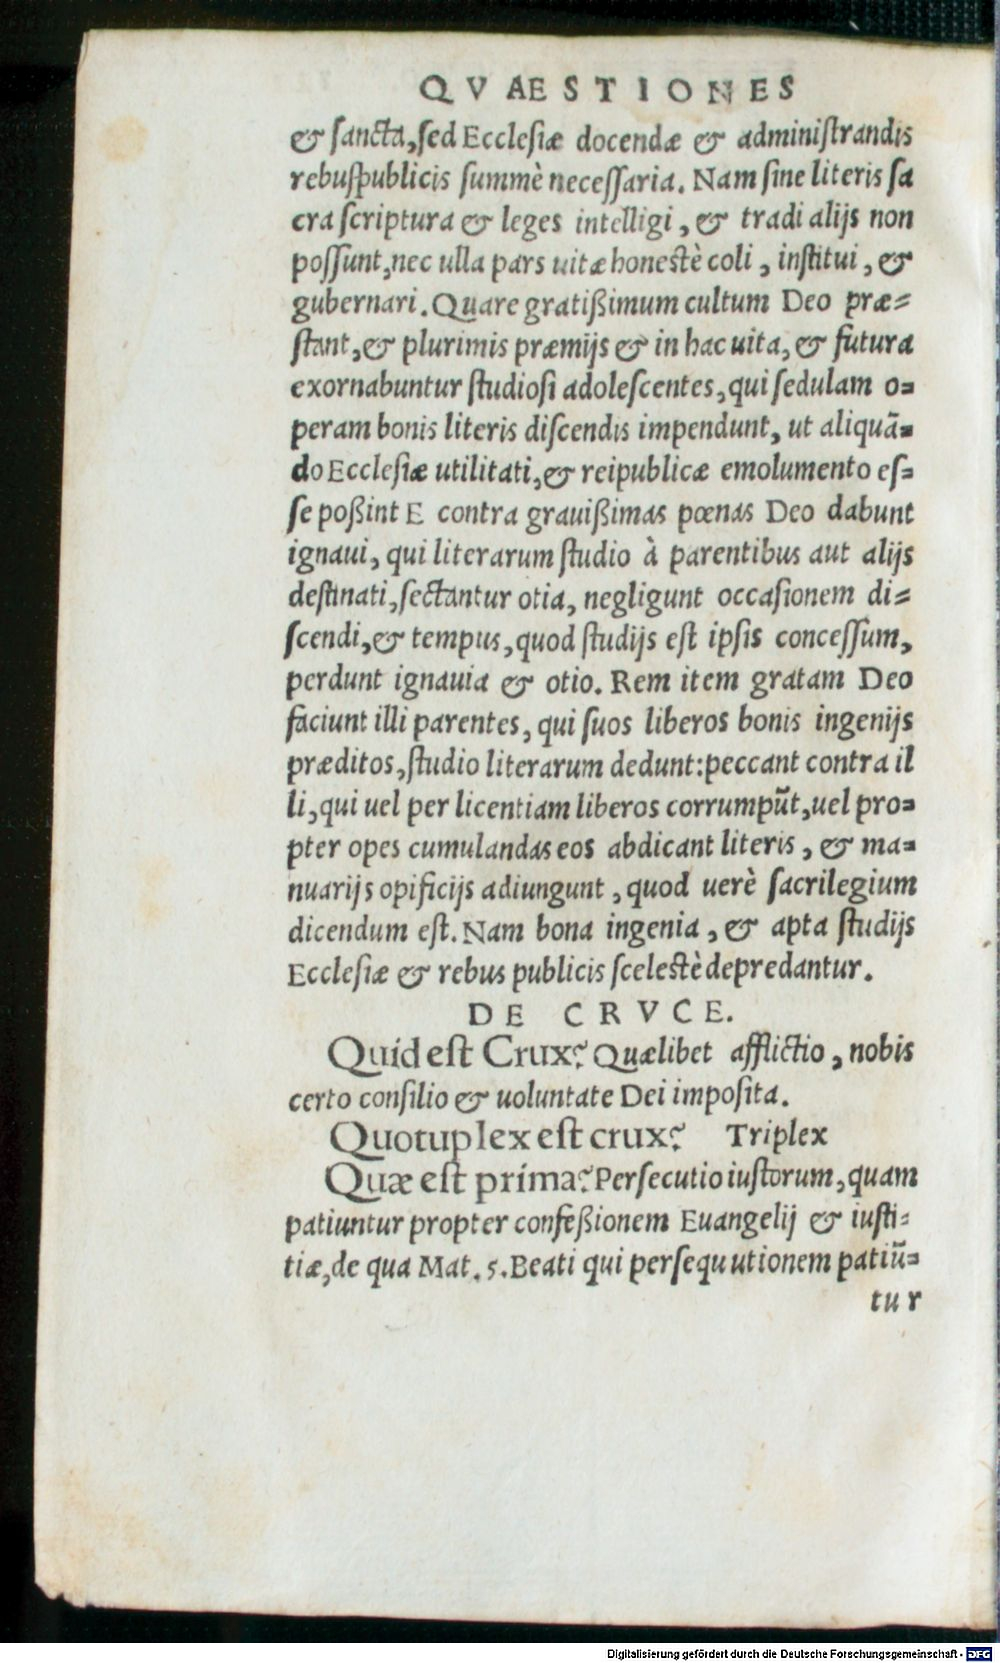 QVAESTIONES
& sancta, sed Ecclesiæ docendæ & administrandis
rebuspublicis summè necessaria. Nam sine literis sa
cra scriptura & leges intelligi, & tradi alijs non
possunt, nec ulla pars uitæ honestè coli, institui, &
gubernari. Quare gratißimum cultum Deo præ=
stant, & plurimis præmijs & in hac uita, & futura
exornabuntur studiosi adolescentes, qui sedulam o=
peram bonis literis discendis impendunt, ut aliquā=
do Ecclesiæ utilitati, & reipublicæ emolumento es=
se poßint E contra grauißimas pœnas Deo dabunt
ignaui, qui literarum studio à parentibus aut alijs
destinati, sectantur otia, negligunt occasionem di=
scendi, & tempus, quod studijs est ipsis concessum,
perdunt ignauia & otio. Rem item gratam Deo
faciunt illi parentes, qui suos liberos bonis ingenijs
præditos, studio literarum dedunt: peccant contra il
li, qui uel per licentiam liberos corrumpūt, uel pro=
pter opes cumulandas eos abdicant literis, & ma=
nuarijs opificijs adiungunt, quod uerè sacrilegium
dicendum est. Nam bona ingenia, & apta studijs
Ecclesiæ & rebus publicis scelestè depredantur.
DE CRVCE.
Quid est Crux? Quælibet afflictio, nobis
certo consilio & uoluntate Dei imposita.
Quotuplex est crux? Triplex
Quæ est prima? Persecutio iustorum, quam
patiuntur propter confeßionem Euangelij & iusti=
tiæ, de qua Mat. 5. Beati qui persequutionem patiū=
tur
Digitalisierung gefördert durch die Deutsche Forschungsgemeinschaft - DFG